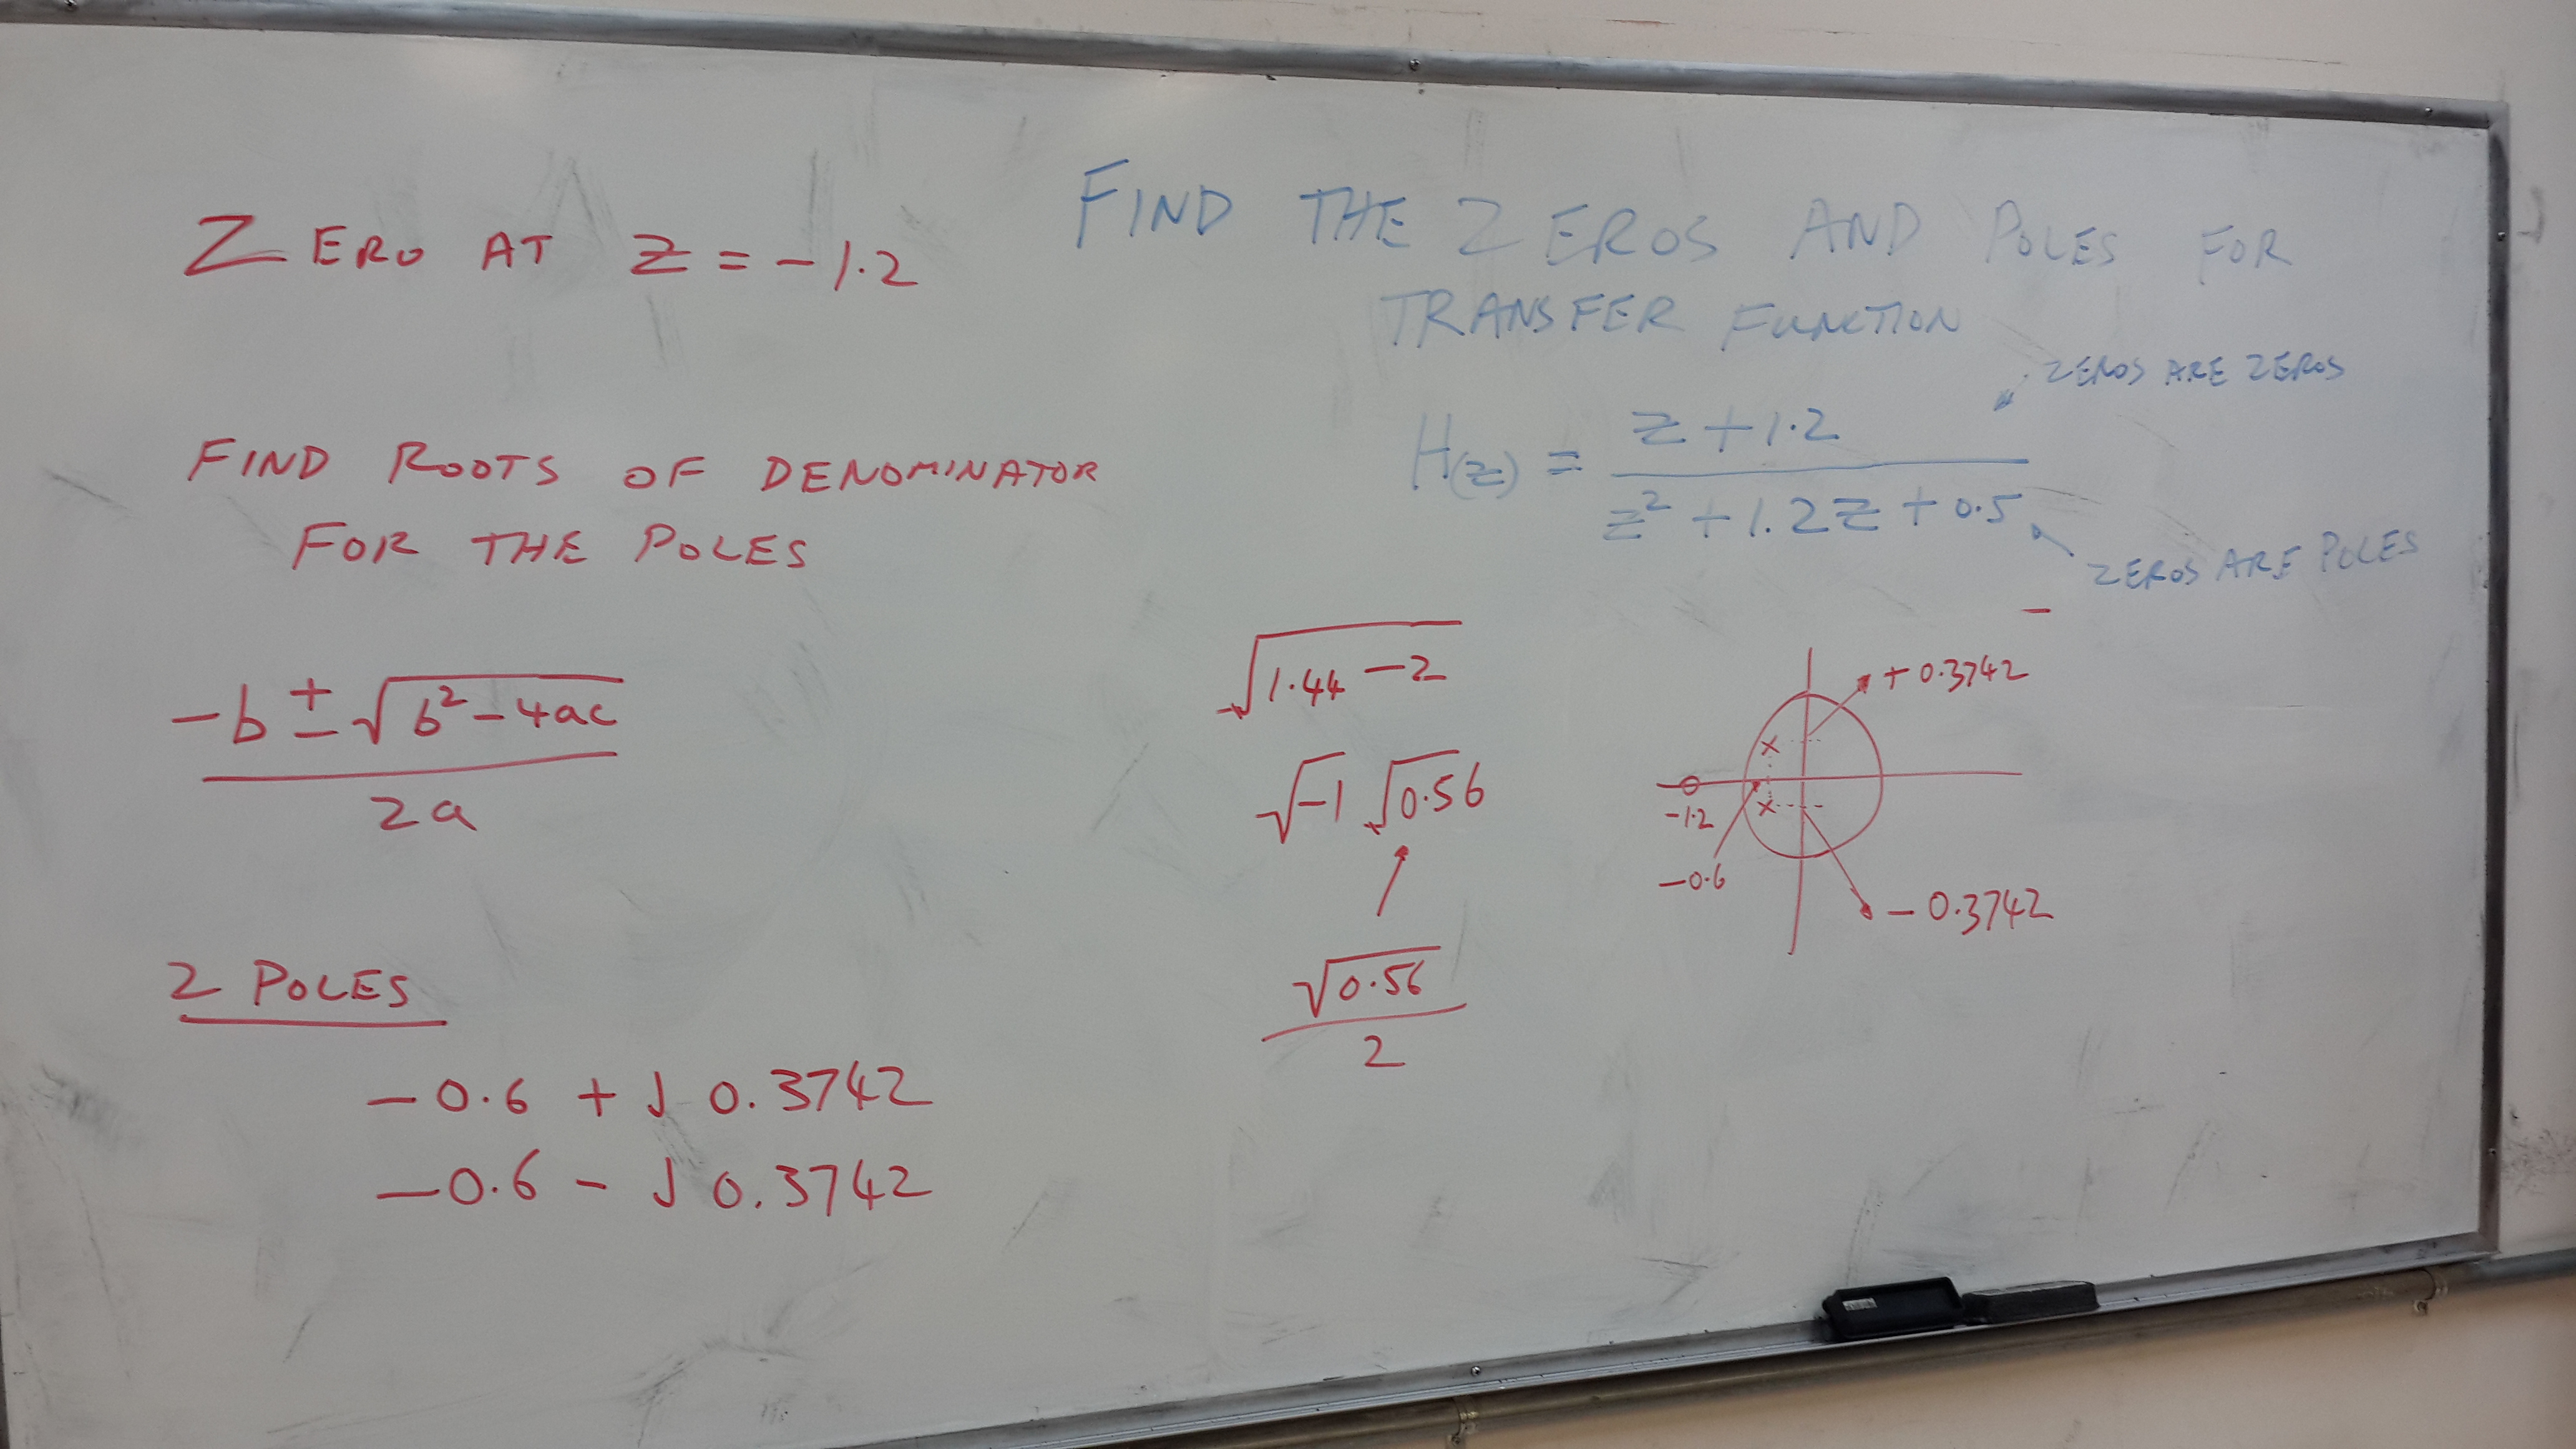 ZERO AT Z = -1.2
FIND ROOTS OF DENOMINATOR
FOR THE POLES
-b ± √b² - 4ac
2a
2 POLES
-0.6 + J 0.3742
-0.6 - J 0.3742
FIND THE ZEROS AND POLES FOR
TRANSFER FUNCTION
ZEROS ARE ZEROS
H(z) = z + 1.2
z² + 1.2z + 0.5
ZEROS ARE POLES
√1.44 - 2
√-1 √0.56
√0.56
2
+ 0.3742
-1.2
-0.6
- 0.3742